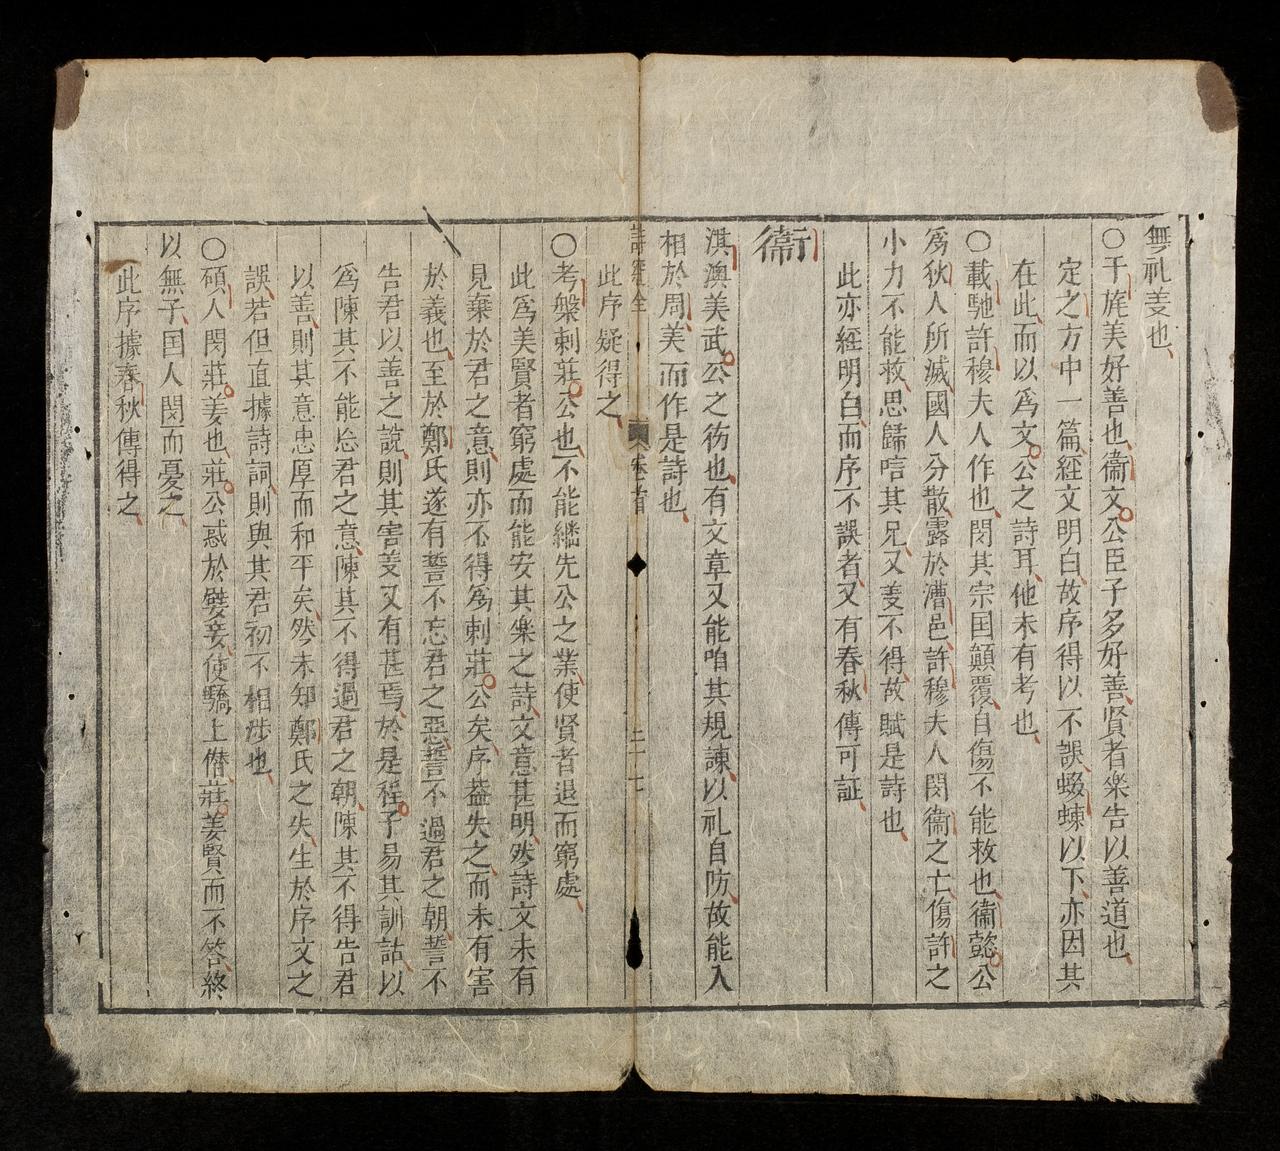 無礼姜也
〇干旄美好善也衞文公臣子多好善賢者樂告以善道也
定之方中一篇經文明白故序得以不誤蝃蝀以下亦因其
在此而以爲文公之詩耳他未有考也
〇載馳許穆夫人作也閔其宗国顛覆自傷不能救也衞懿公
爲狄人所滅國人分散露於漕邑許穆夫人閔衞之亡傷許之
小力不能救思歸唁其兄又義不得故賦是詩也
此亦經明白而序不誤者又有春秋傳可証
衞
淇澳美武公之徳也有文章又能咱其規諫以礼自防故能入
相於周美而作是詩也
詩經全 卷首 二十七
此序疑得之
〇考槃刺莊公也不能繼先公之業使賢者退而窮處
此爲美賢者窮處而能安其樂之詩文意甚明然詩文未有
見棄於君之意則亦不得爲刺莊公矣序蓋失之而未有害
於義也至於鄭氏遂有誓不忘君之惡誓不過君之朝誓不
告君以善之說則其害義又有甚焉於是程子易其訓詁以
爲陳其不能忘君之意陳其不得過君之朝陳其不得告君
以善則其意忠厚而和平矣然未知鄭氏之失生於序文之
誤若但直據詩詞則與其君初不相涉也
〇碩人閔莊姜也莊公惑於嬖妾使驕上僭莊姜賢而不答終
以無子国人閔而憂之
此序據春秋傳得之